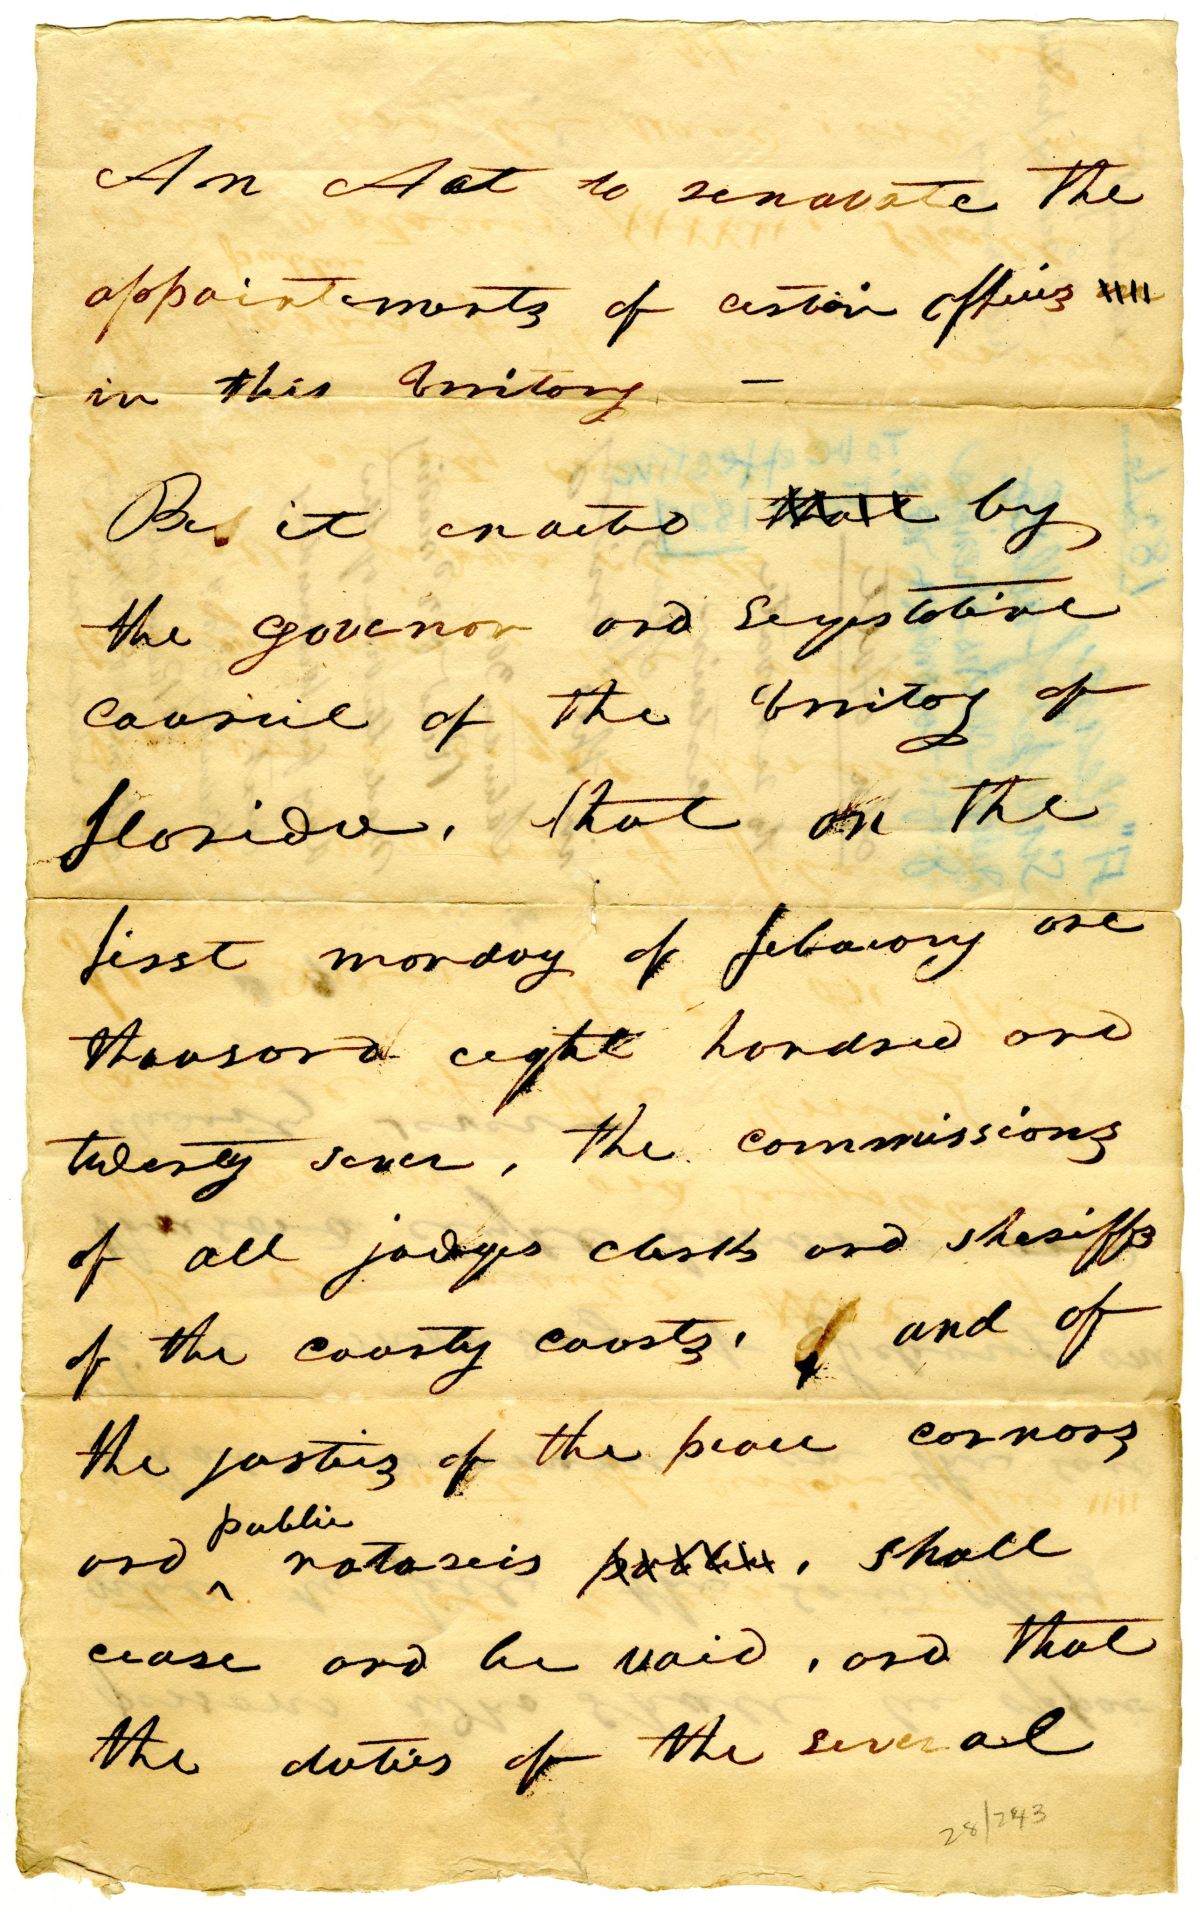 An Act to renovate the
appointements of certain offices
in this Territory —
Be it enacted that by
the Governor and Legeslative
Council of the Territory of
Florida, that on the
first monday of febuary one
thousand eight hundred and
twenty seven, the commissions
of all judges clerks and sheriffs
of the county courts, and of
the justices of the peace cornors
public
and ^ notareis public, shall
cease and be void, and that
the duties of the several
28/243